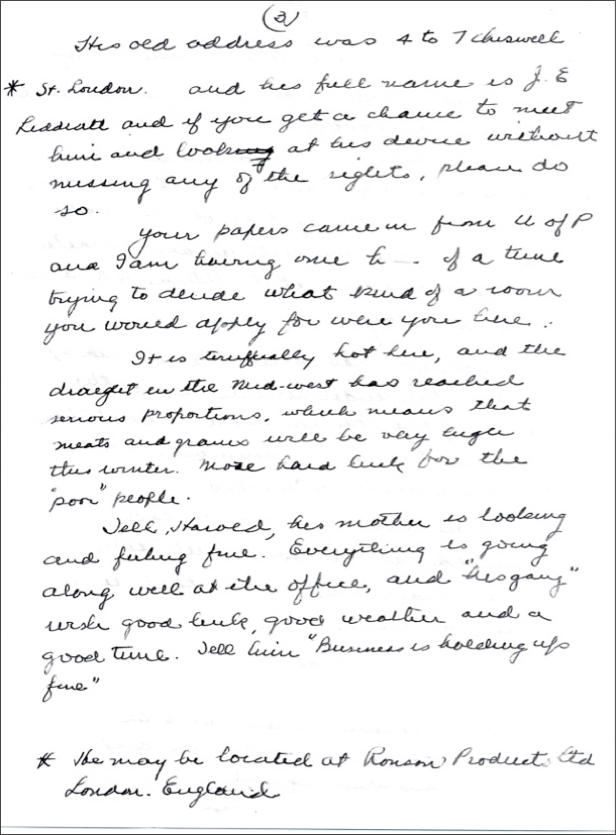 (3)
His old address was 4 to 7 Chiswell
* St. London. and his full name is J. E
Liddiatt and if you get a chance to meet
him and look at his device without
missing any of the rights, please do
so.
Your papers came in from U of P
and I am having one h—. of a time
trying to decide what kind of a room
you would apply for were you here.
It is terrifically hot here, and the
draught in the Mid-west has reached
serious proportions, which means that
meats and grains will be very high
this winter. More hard luck for the
"poor" people.
Tell, Harold, his mother is looking
and feeling fine. Everything is going
along well at the office, and "his gang"
wish good luck, good weather and a
good time. Tell him "Business is holding up
fine"
* He may be located at Ronson Products Ltd
London. England